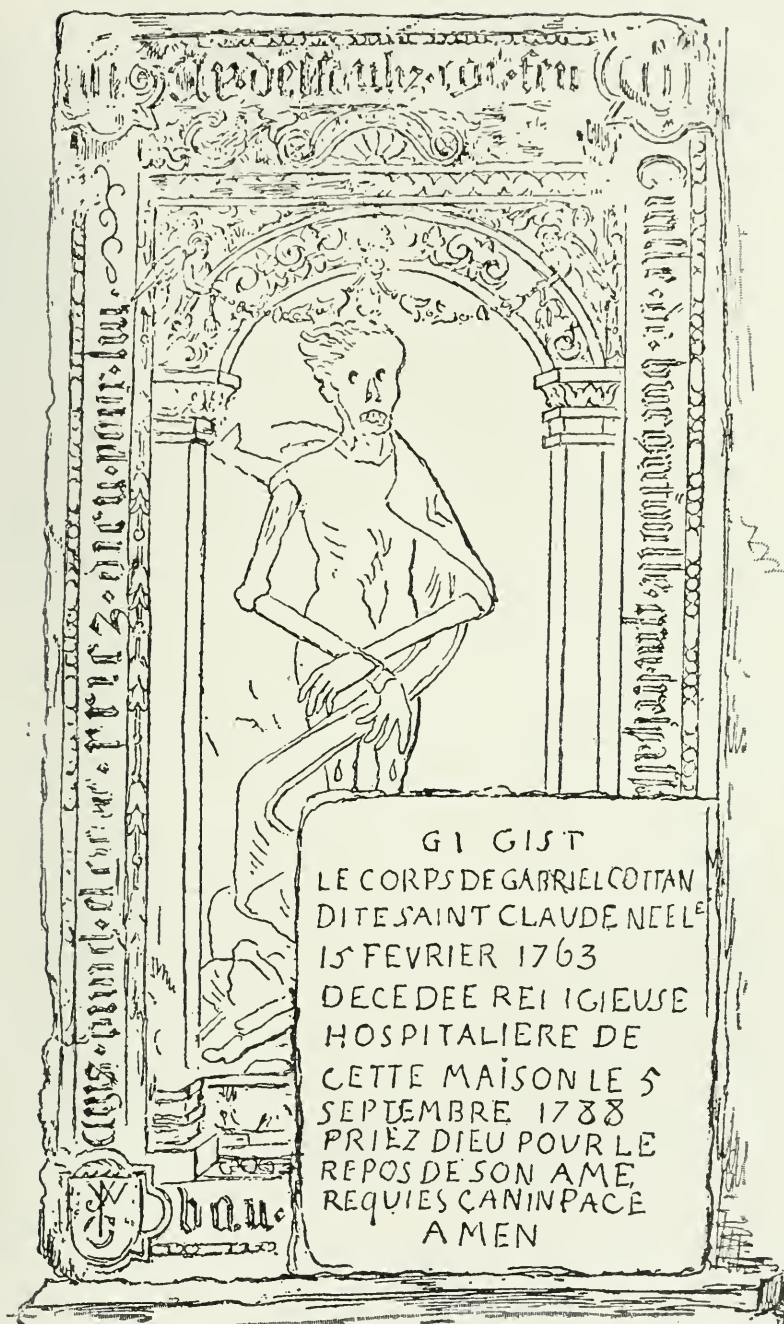 Cy·dessoubz·gist·feu
priez·dieu·pour·luy·
GI GIST
LE CORPS DE GABRIEL COTTAN
DITE SAINT CLAUDE NEE LE
15 FEVRIER 1763
DECEDEE RELIGIEUSE
HOSPITALIERE DE
CETTE MAISON LE 5
SEPTEMBRE 1788
PRIEZ DIEU POUR LE
REPOS DE SON AME
REQUIES CANINPACE
AMEN